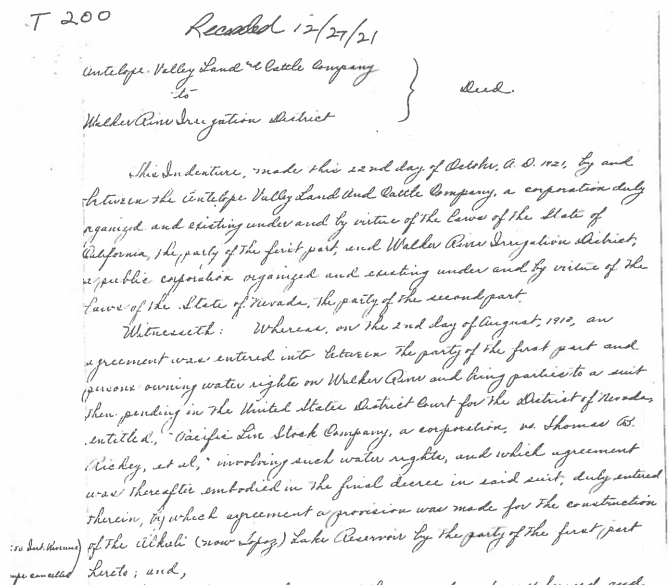 T 200
Recorded 12/27/21
Antelope Valley Land & Cattle Company
to
Deed.
Walker River Irrigation District
This Indenture, made this 22nd day of October, A.D. 1921, by and
between the Antelope Valley Land And Cattle Company, a corporation duly
organized and existing under and by virtue of the laws of the State of
California, the party of the first part, and Walker River Irrigation District,
a public corporation organized and existing under and by virtue of the
laws of the State of Nevada, the party of the second part.
Witnesseth: Whereas, on the 2nd day of August, 1918, an
agreement was entered into between the party of the first part and
persons owning water rights on Walker River and being parties to a suit
then pending in the United States District Court for the District of Nevada,
entitled, "Pacific Live Stock Company, a corporation, vs. Thomas B.
Rickey, et al," involving such water rights, and which agreement
was thereafter embodied in the final decree in said suit, duly entered
therein, by which agreement a provision was made for the construction
of the Alkali (now Topaz) Lake Reservoir by the party of the first part
Int. Revenue)
cancelled
hereto; and,